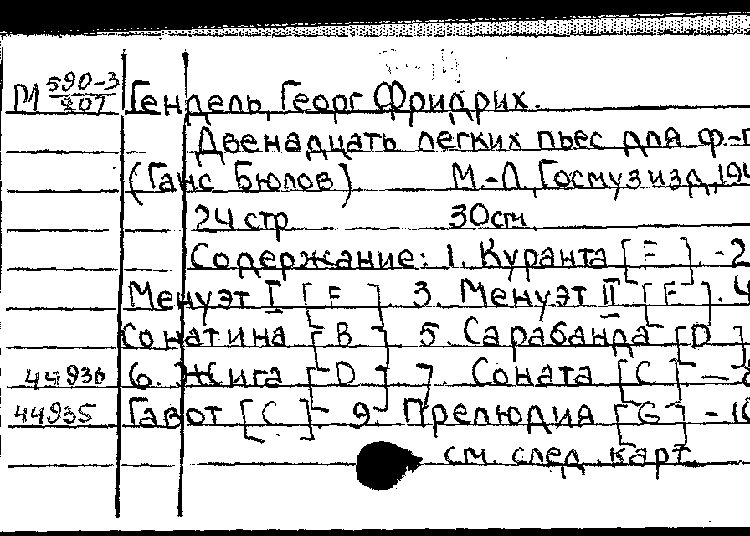 М 590-3/807 Гендель, Георг Фридрих.
Двенадцать легких пьес для ф.-п
(Ганс Бюлов) М.-Л., Госмузизд, 194
24 стр. 30 см.
Содержание: 1. Куранта [F]. - 2
Менуэт I [F]. 3. Менуэт II [F]. 4
Сонатина [B] 5. Сарабанда [D]
44936 6. Жига [D] 7. Соната [C] - 8
44935 Гавот [C] - 9. Прелюдия [G] - 10
см. след. карт.